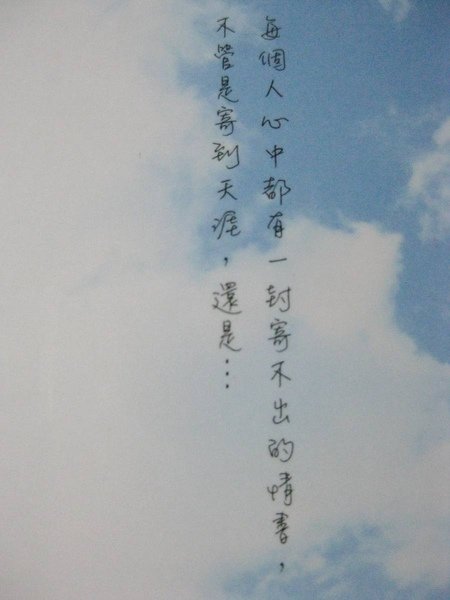 每個人心中都有一封寄不出的情書，
不管是寄到天涯，還是…